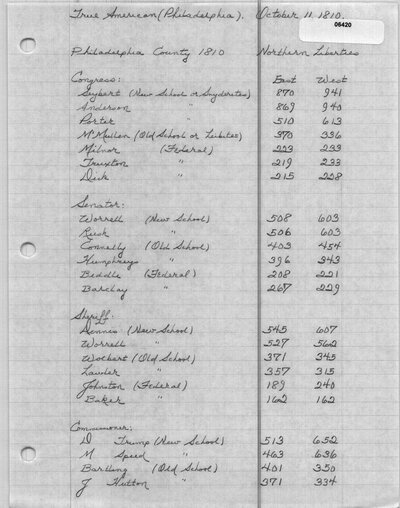 True American (Philadelphia). October 11 1810.
06420
Philadelphia County 1810 Northern Liberties
Congress: East West
Seybert (New School or Snyderites) 870 941
Anderson " 869 940
Porter " 510 613
McMullen (Old School or Leibites) 370 336
Milnor (Federal) 223 233
Truxton " 219 233
Dick " 215 228
Senator:
Worrell (New School) 508 603
Rush " 506 603
Connelly (Old School) 403 454
Humphreys " 396 343
Biddle (Federal) 208 221
Barclay " 267 229
Sheriff:
Dennis (New School) 545 607
Worrell " 527 562
Wolbert (Old School) 371 345
Lawler " 357 315
Johnston (Federal) 189 240
Baker " 162 162
Commissioner:
D Trump (New School) 513 652
M Speed " 463 636
Bartling (Old School) 401 350
J Hutton " 371 334